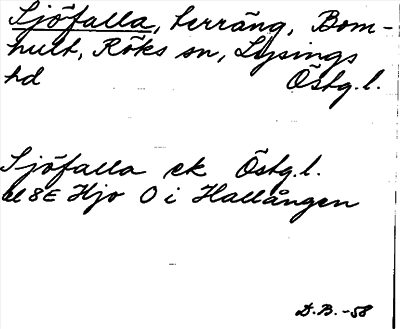 Sjöfalla, terräng, Bom-
hult, Röks sn, Lysings
hd Östg.l.
Sjöfalla ek Östg.l.
bl 8E Hjo O i Hallången
D.B.-58